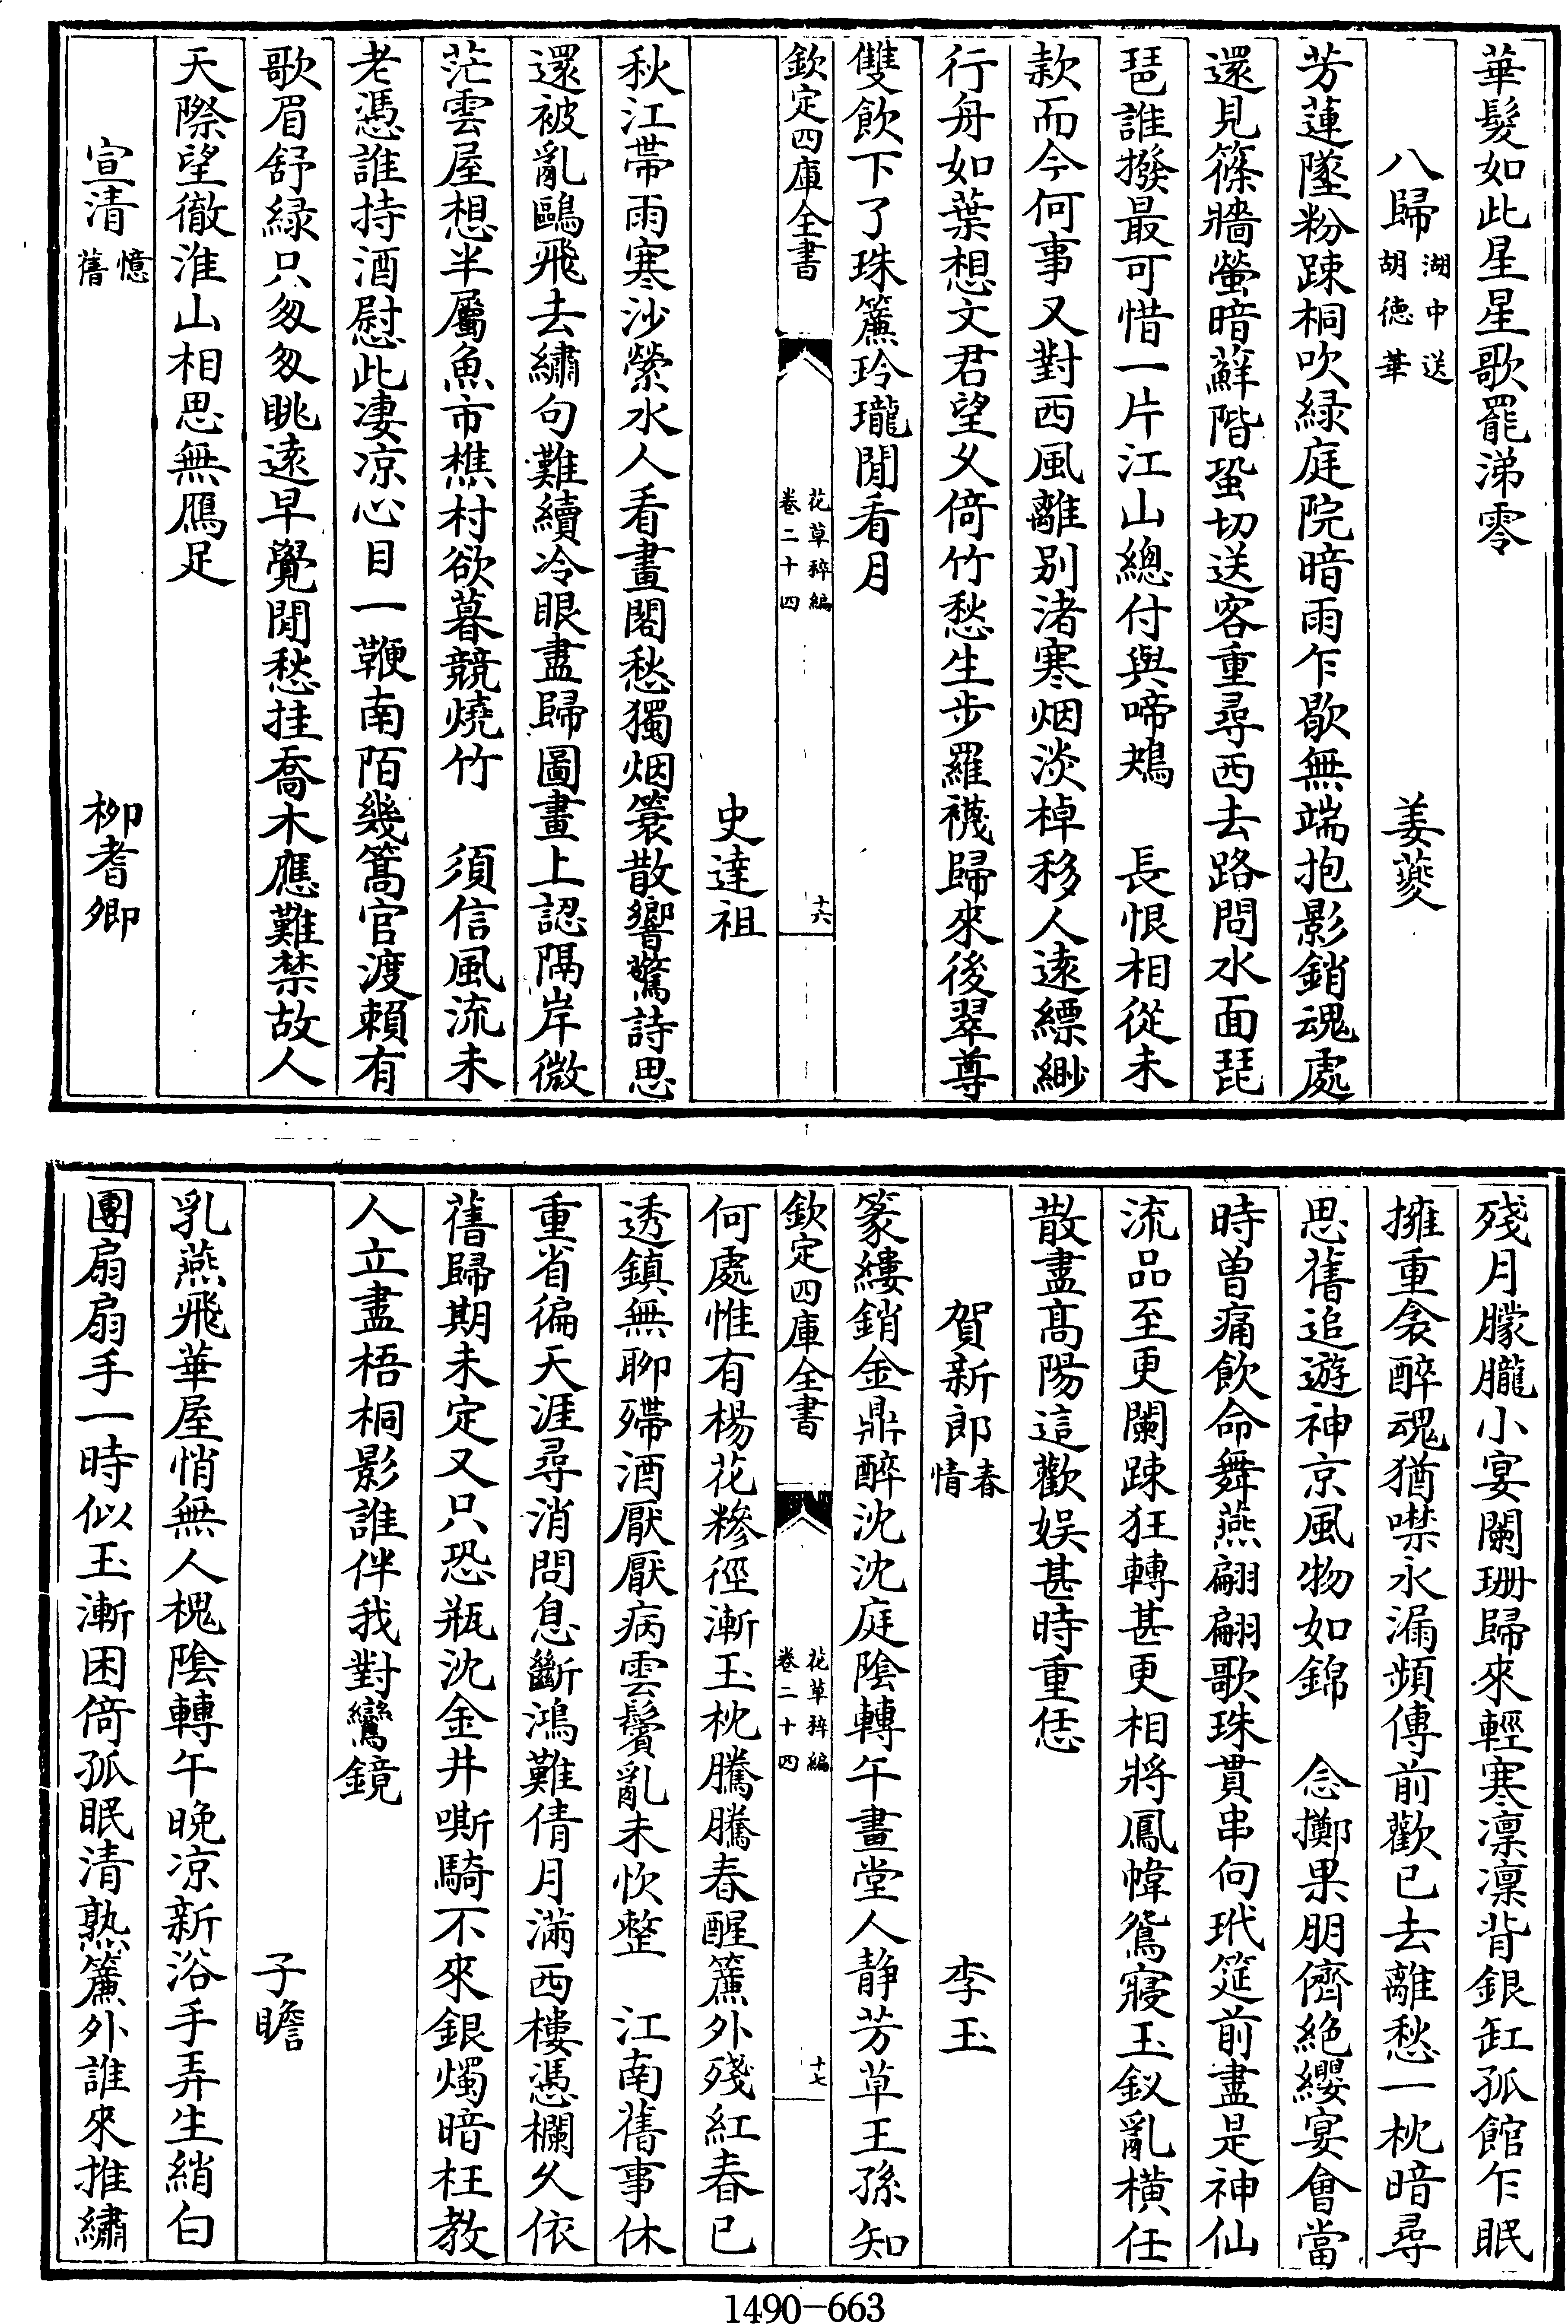 華髮如此星星歌罷涕零
八歸湖中送胡徳華　姜夔
芳蓮墜粉踈桐吹緑庭院暗雨乍歇無端抱影銷魂處
還見篠牆螢暗蘚階蛩切送客重尋西去路問水面琵
琶誰撥最可惜一片江山總付與啼鴂　長恨相從未
款而今何事又對西風離别渚寒烟淡棹移人逺縹緲
行舟如葉想文君望乆倚竹愁生步羅襪歸來後翠尊
雙飲下了珠簾玲瓏閒看月
欽定四庫全書　花草稡編卷二十四　十六
史達祖
秋江帶雨寒沙縈水人看畫閣愁獨烟簑散響驚詩思
還被亂鷗飛去繡句難續冷眼盡歸圖畫上認隔岸微
茫雲屋想半屬魚市樵村欲暮競燒竹　須信風流未
老憑誰持酒慰此凄凉心目一鞭南陌幾篙官渡頼有
歌眉舒緑只匆匆眺逺早覺閒愁挂喬木應難禁故人
天際望徹淮山相思無鴈足
宣清憶舊　栁耆卿
殘月朦朧小宴闌珊歸來輕寒凛凛背銀缸孤館乍眠
擁重衾醉魂猶噤永漏頻傳前歡已去離愁一枕暗尋
思舊追遊神京風物如錦　念擲果朋儕絶纓宴會當
時曽痛飲命舞燕翩翩歌珠貫串向玳筵前盡是神仙
流品至更闌踈狂轉甚更相將鳳幃鴛寢玉釵亂横任
散盡髙陽這歡娱甚時重恁
賀新郎春情　李玉
篆縷銷金鼎醉沈沈庭隂轉午畫堂人静芳草王孫知
欽定四庫全書　花草稡編卷二十四　十七
何處惟有楊花糝徑漸玉枕騰騰春醒簾外殘紅春已
透鎮無聊殢酒厭厭病雲鬢亂未忺整　江南舊事休
重省徧天涯尋消問息斷鴻難倩月滿西樓憑欄乆依
舊歸期未定又只恐瓶沈金井嘶騎不來銀燭暗枉教
人立盡梧桐影誰伴我對鸞鏡
子瞻
乳燕飛華屋悄無人槐隂轉午晚凉新浴手弄生綃白
團扇扇手一時似玉漸困倚孤眠清熟簾外誰來推繡
1490—663